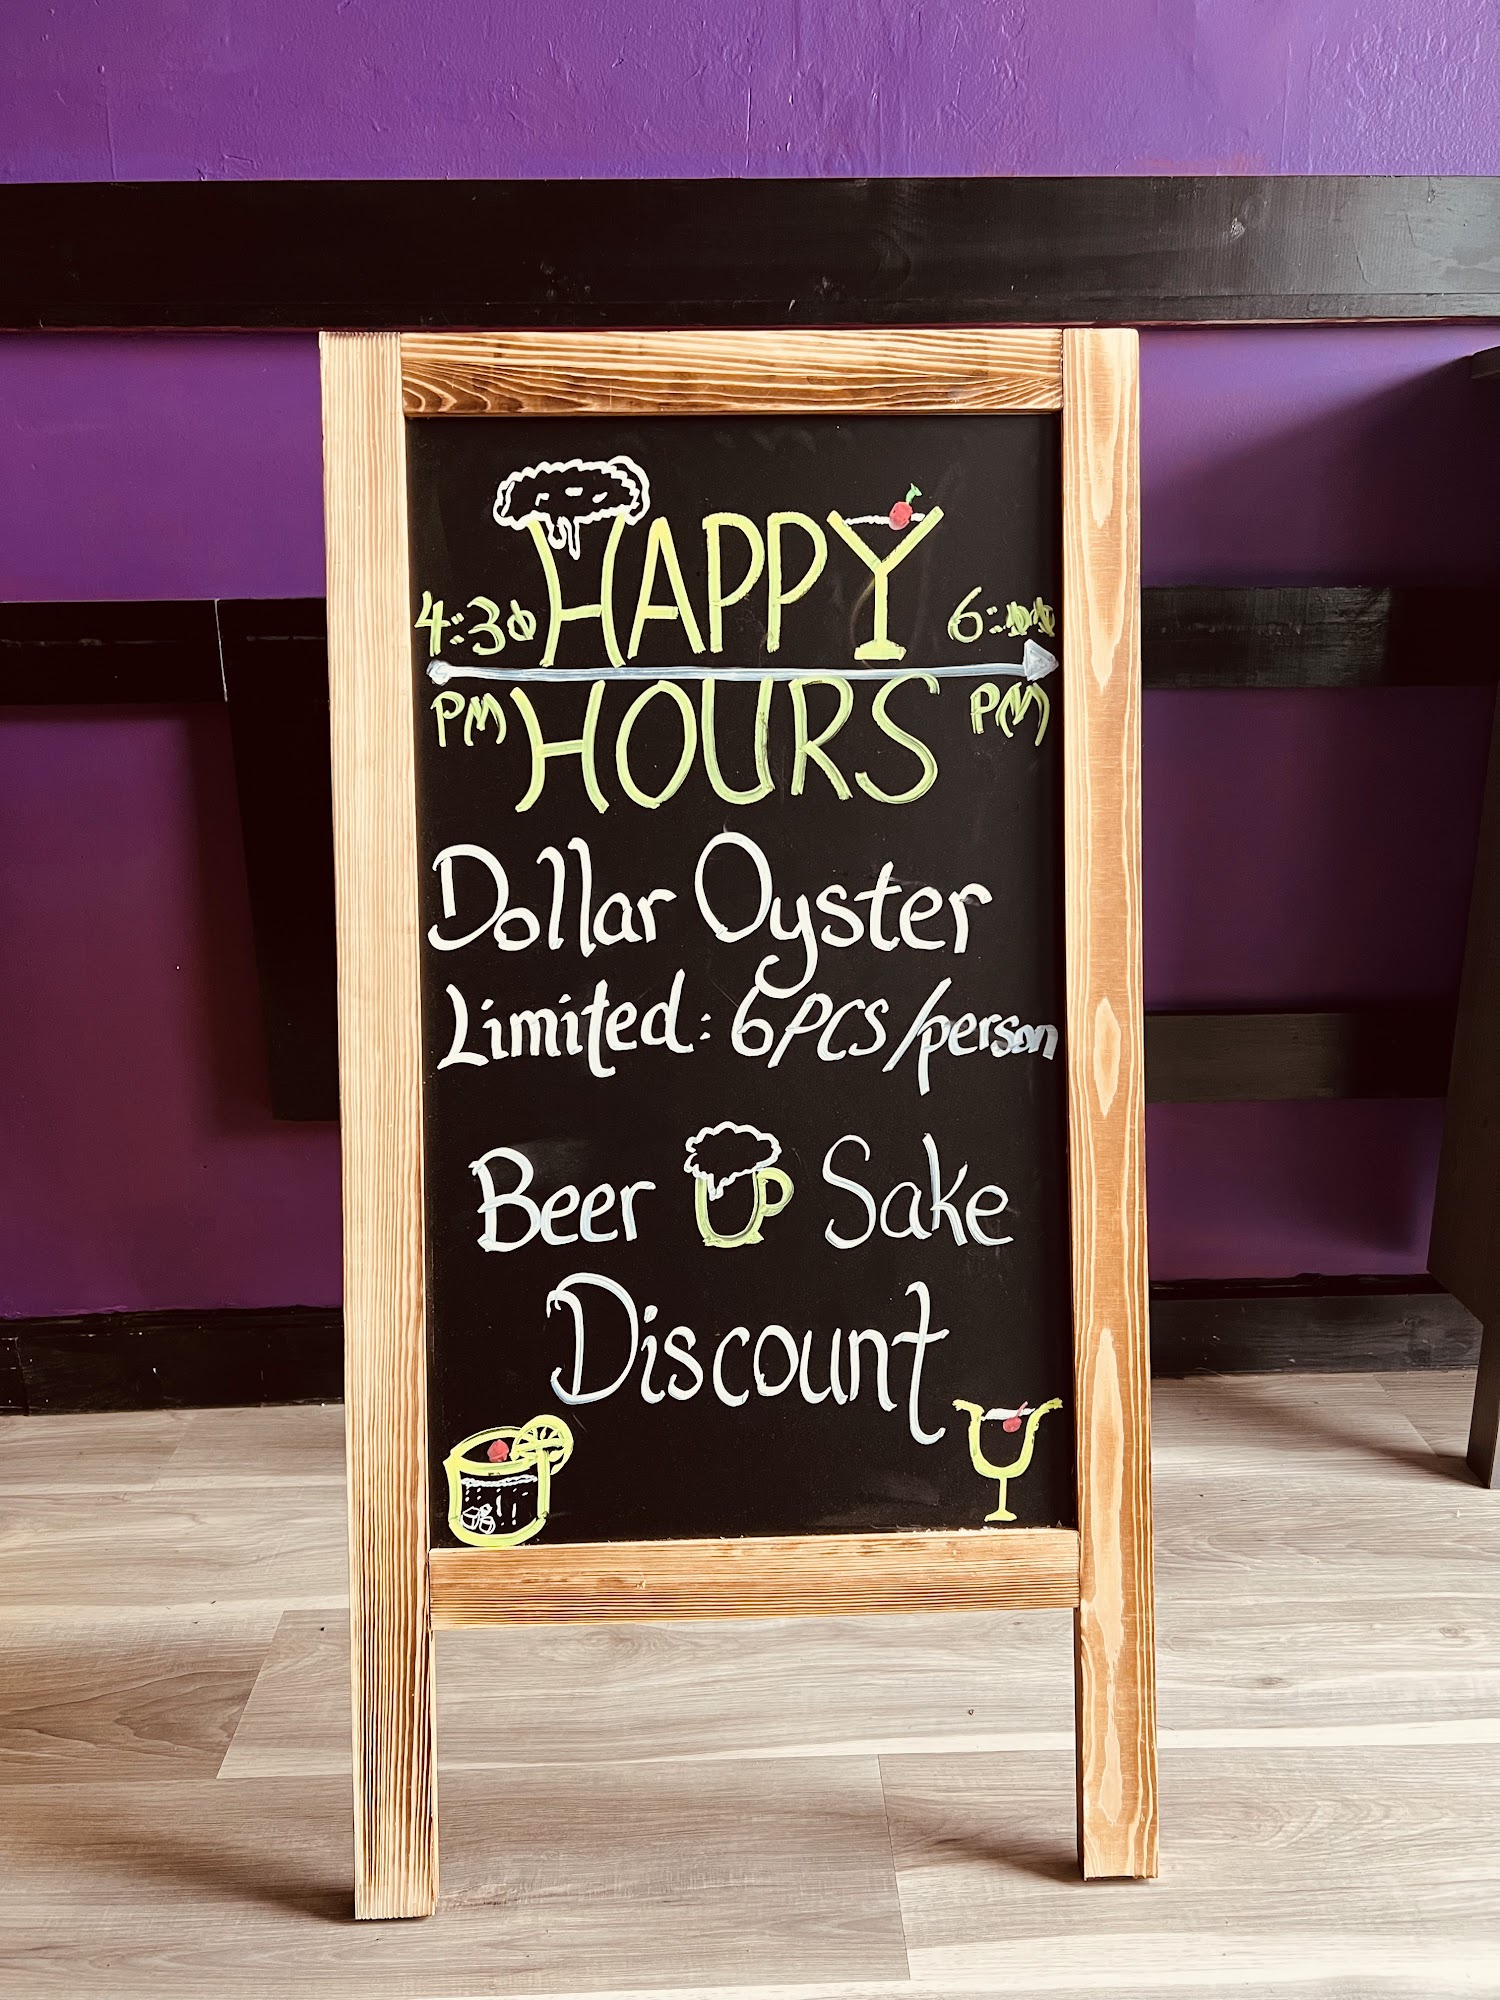 HAPPY
4:30 6:00
PM HOURS PM
Dollar Oyster
Limited: 6PCS/person
Beer Sake
Discount